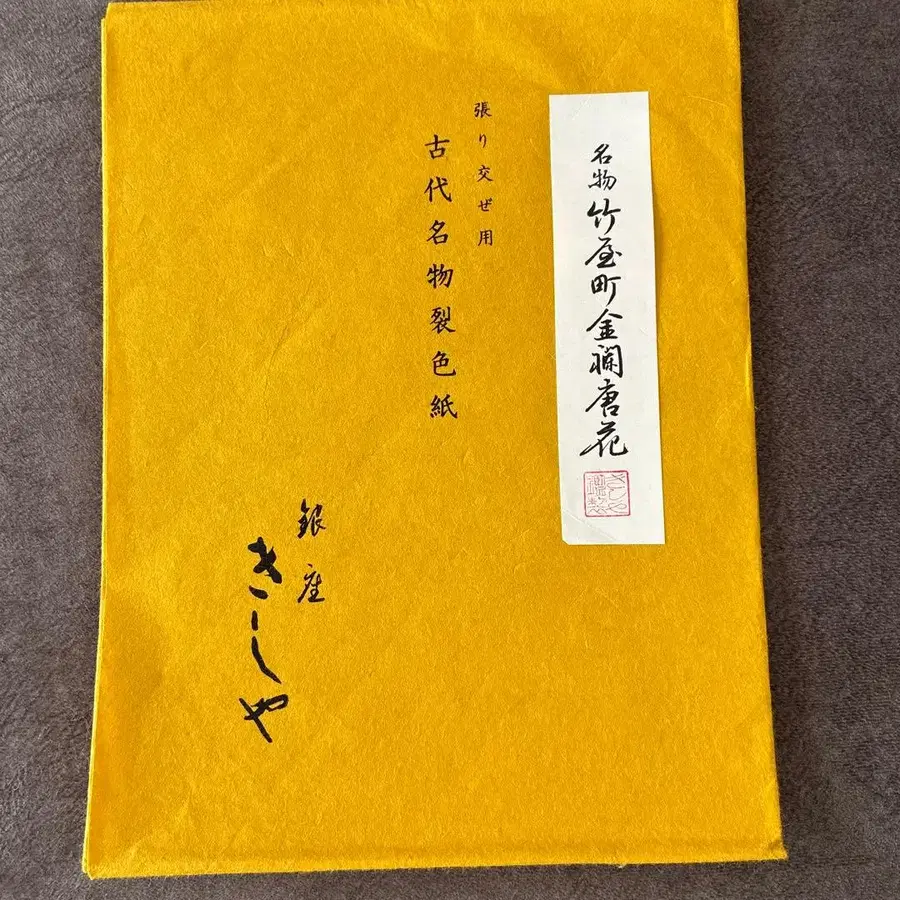 名物竹屋町金襴唐花
張り交ぜ用
古代名物裂色紙
銀座
きしや